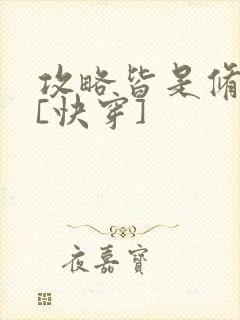 攻略皆是修
[快穿]
夜嘉寶